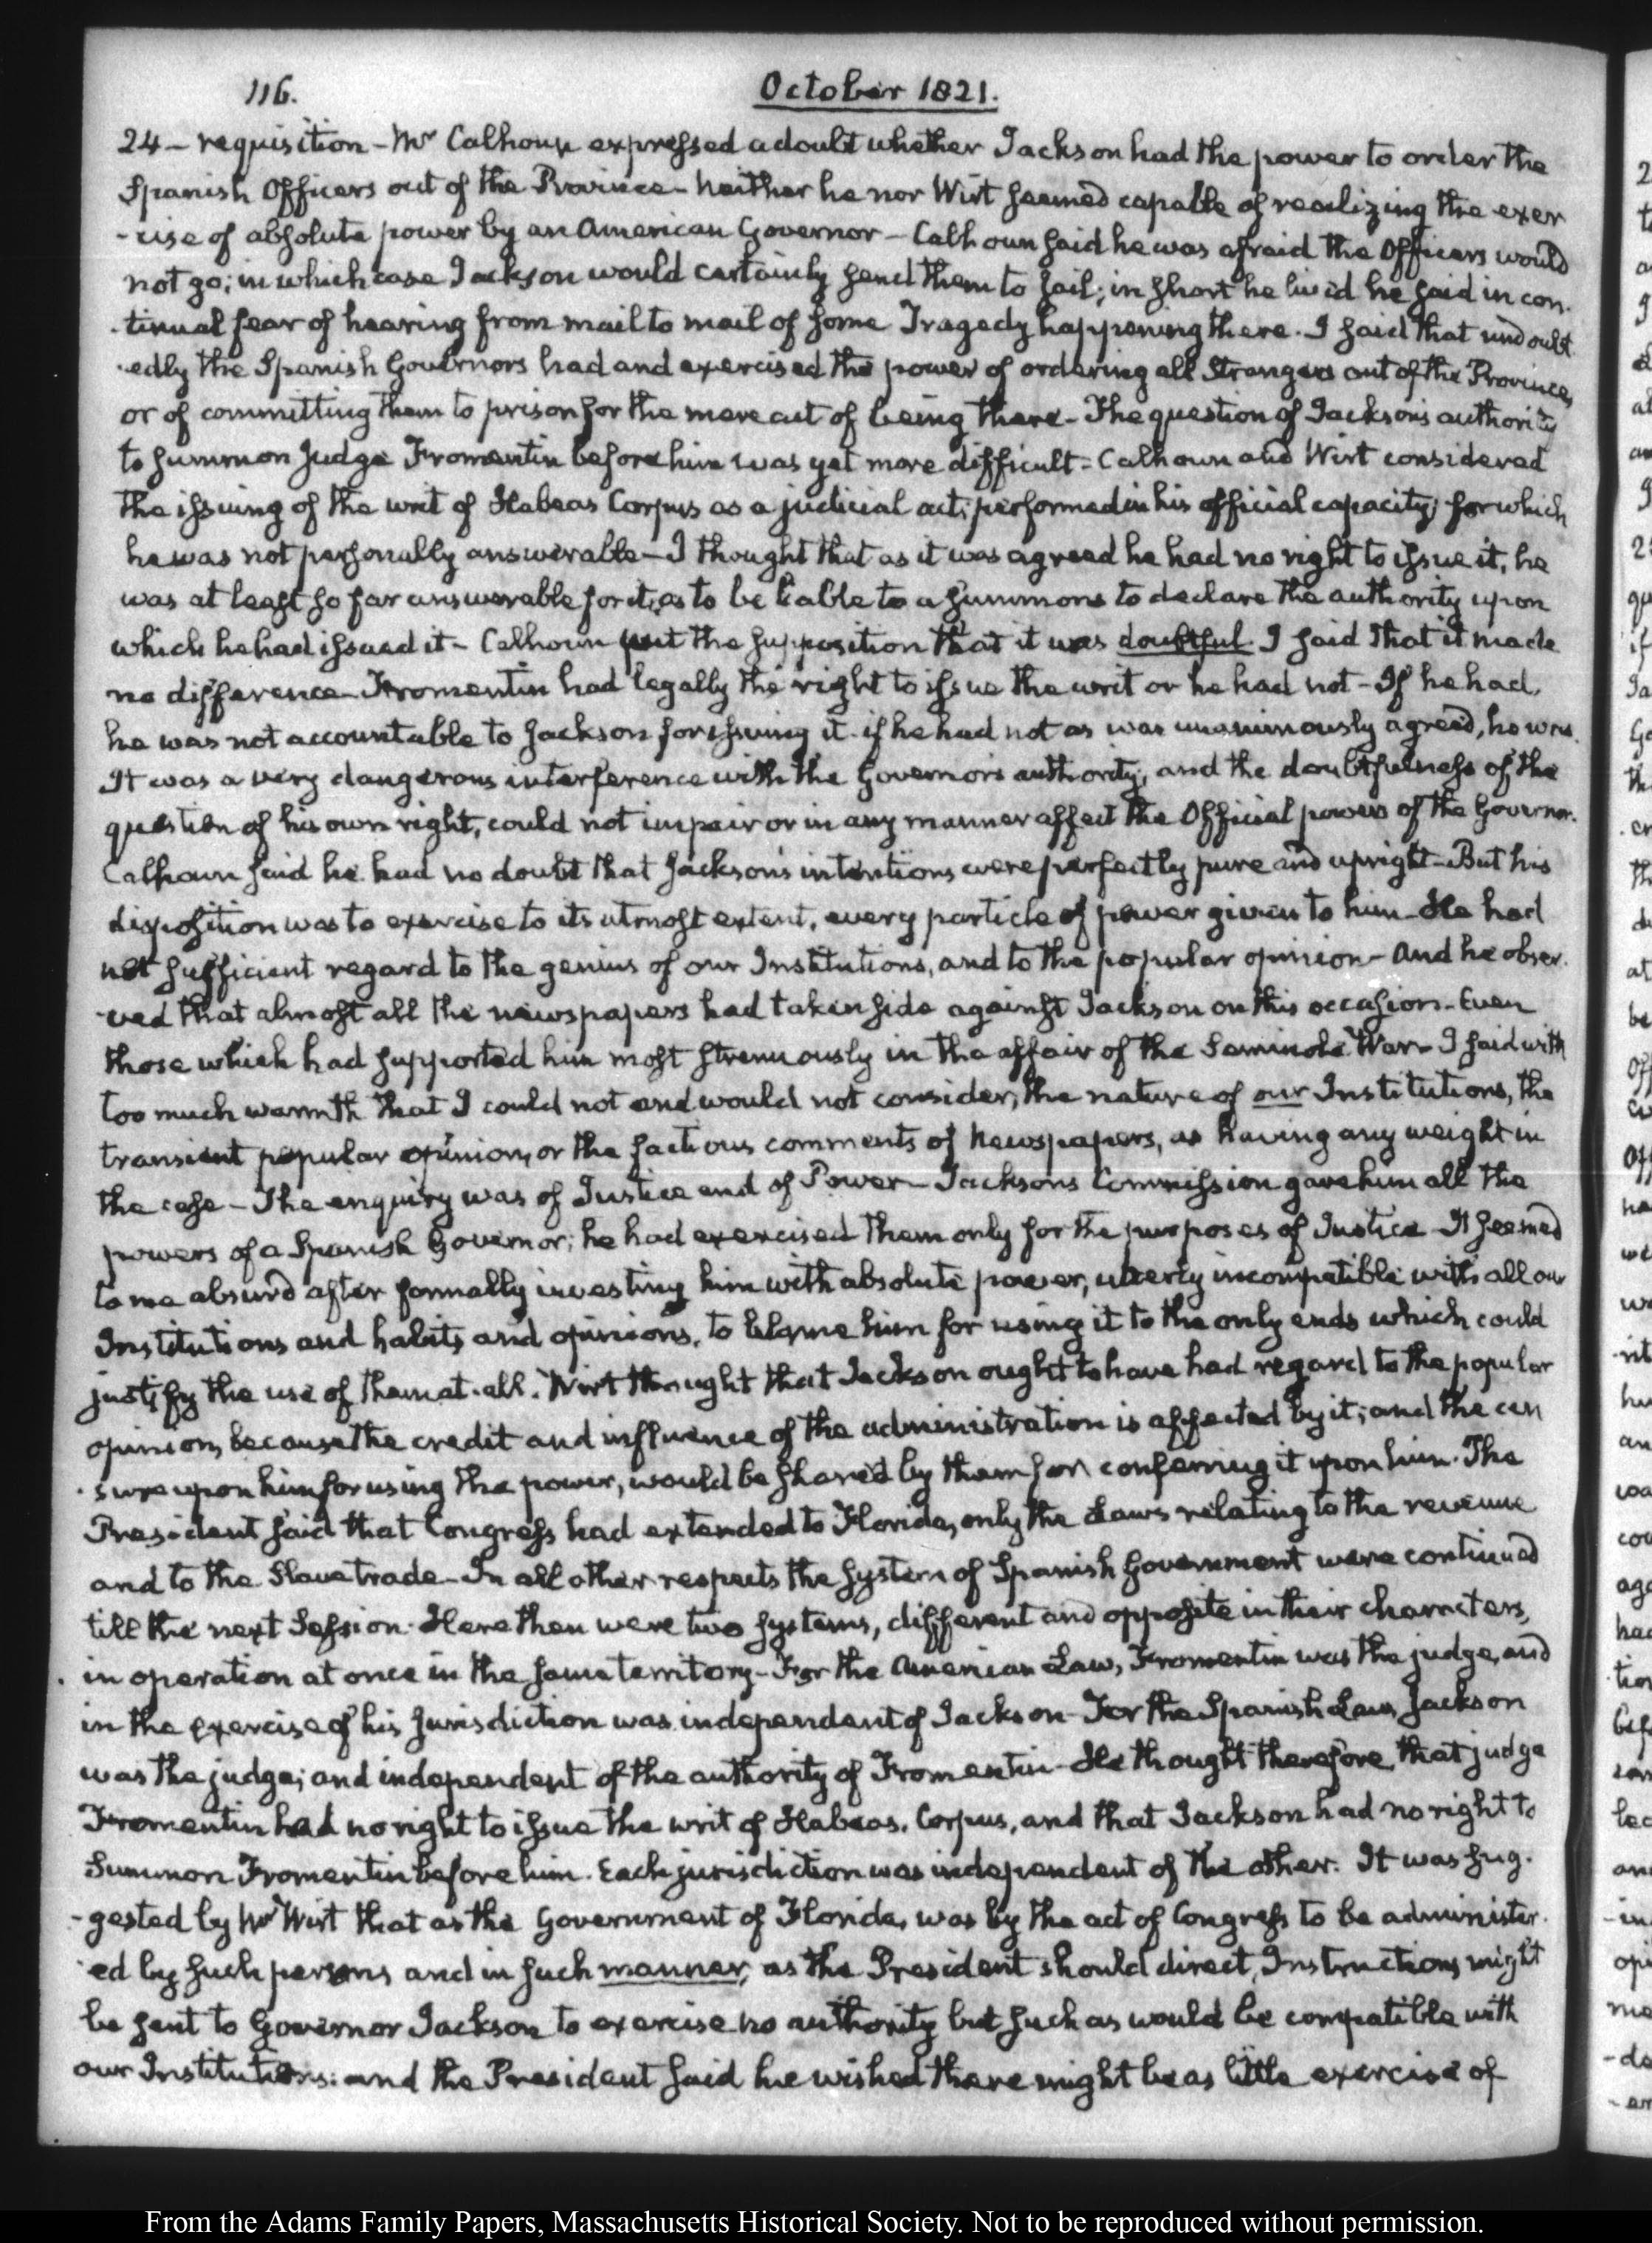 116.
October 1821.
24 - requisition - Mr Calhoun expressed a doubt whether Jackson had the power to order the
Spanish Officers out of the Province - Neither he nor Wirt seemed capable of realizing the exer
-cise of absolute power by an American Governor - Calhoun said he was afraid the Officers would
not go; in which case Jackson would certainly send them to jail; in short he liv'd he said in con-
-tinual fear of hearing from mail to mail of some Tragedy happening there. I said that undoubt
-edly the Spanish Governors had and exercised the power of ordering all Strangers out of the Province,
or of committing them to prison for the mere act of being there - The question of Jackson's authority
to summon Judge Fromentin before him was yet more difficult - Calhoun and Wirt considered
the issuing of the writ of Habeas Corpus as a judicial act, performed in his official capacity, for which
he was not personally answerable - I thought that as it was agreed he had no right to issue it, he
was at least so far answerable for it, as to be liable to a summons to declare the authority upon
which he had issued it - Calhoun put the supposition that it was doubtful I said that it made
no difference - Fromentin had legally the right to issue the writ or he had not - If he had,
he was not accountable to Jackson for issuing it. if he had not as was unanimously agreed, he was.
It was a very dangerous interference with the Governor's authority, and the doubtfulness of the
question of his own right, could not impair or in any manner affect the Official powers of the Governor.
Calhoun said he had no doubt that Jackson's intentions were perfectly pure and upright - But his
disposition was to exercise to its utmost extent, every particle of power given to him - He had
not sufficient regard to the genius of our Institutions, and to the popular opinion - And he obser-
-ved that almost all the newspapers had taken side against Jackson on this occasion - Even
those which had supported him most strenuously in the affair of the Seminole War - I said with
too much warmth that I could not and would not consider, the nature of our Institutions, the
transient popular opinion, or the factious comments of Newspapers, as having any weight in
the case - The enquiry was of Justice and of Power - Jacksons Commission gave him all the
powers of a Spanish Governor; he had exercised them only for the purposes of Justice It seemed
to me absurd after formally investing him with absolute power, utterly incompatible with all our
Institutions and habits and opinions, to blame him for using it to the only ends which could
justify the use of them at all. Wirt thought that Jackson ought to have had regard to the popular
opinion, because the credit and influence of the administration is affected by it; and the cen
-sure upon him for using the power, would be shared by them for conferring it upon him. The
President said that Congress had extended to Florida, only the Laws relating to the revenue
and to the Slave trade - In all other respects the system of Spanish Government were continued
till the next Session. Here then were two systems, different and opposite in their characters,
in operation at once in the same territory - For the American Law, Fromentin was the judge, and
in the exercise of his jurisdiction was independent of Jackson - For the Spanish Law, Jackson
was the judge; and independent of the authority of Fromentin - He thought therefore, that judge
Fromentin had no right to issue the writ of Habeas Corpus, and that Jackson had no right to
Summon Fromentin before him. Each jurisdiction was independent of the other. It was sug-
-gested by Mr Wirt that as the Government of Florida, was by the act of Congress to be administer-
-ed by such persons and in such manner, as the President should direct, Instructions might
be sent to Governor Jackson to exercise no authority but such as would be compatible with
our Institutions: and the President said he wished there might be as little exercise of
From the Adams Family Papers, Massachusetts Historical Society. Not to be reproduced without permission.